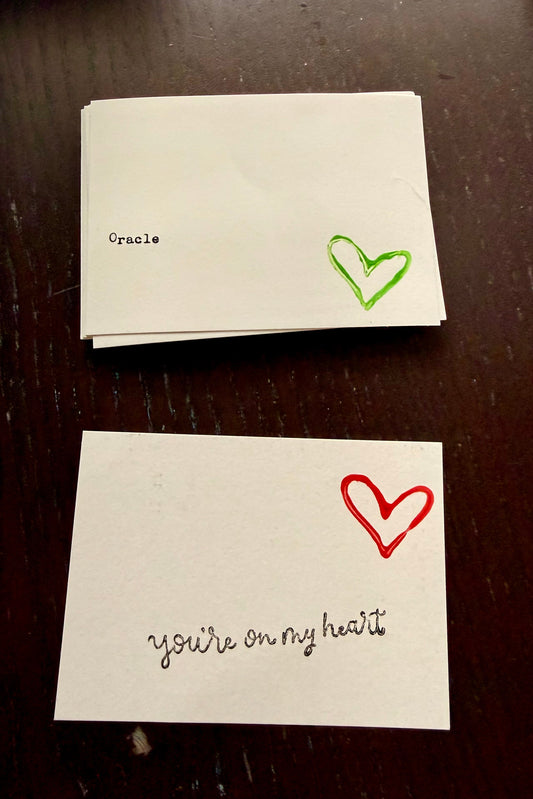 Oracle
you're on my heart